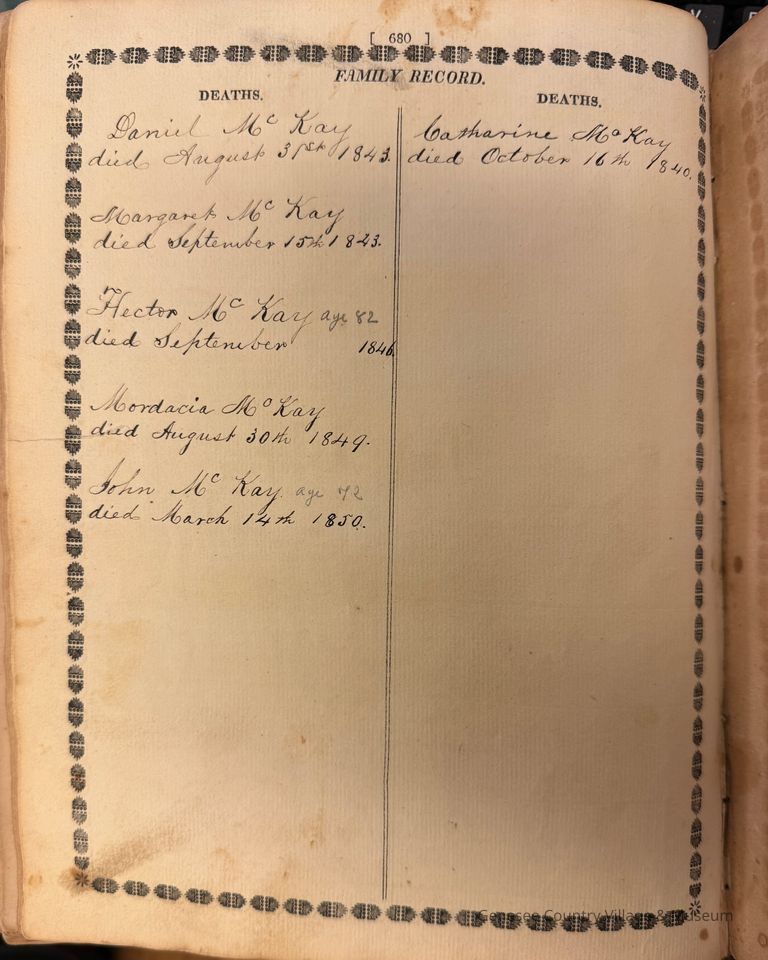 [ 680 ]
FAMILY RECORD.
DEATHS.
Daniel Mc Kay
died August 31st 1843.
Margaret Mc Kay
died September 15th 1823.
Hector Mc Kay age 82
died September 1846
Mordacia Mc Kay
died August 30th 1849.
John Mc Kay. age 72
died March 14th 1850.
DEATHS.
Catharine Mc Kay
died October 16th 1840.
Genesee Country Village & Museum